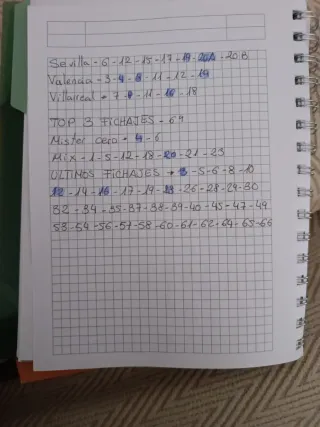 Sevilla - 6 - 12 - 15 - 17 - 19 - 20A - 20B
Valencia - 3 - 4 - 8 - 11 - 12 - 19
Villarreal - 7 - 9 - 11 - 16 - 18
TOP 3 FICHAJES - 69
Mister cero - 4 - 6
Mix - 1 - 5 - 12 - 18 - 20 - 21 - 23
ULTIMOS FICHAJES - 3 - 5 - 6 - 8 - 10
12 - 14 - 16 - 17 - 19 - 23 - 26 - 28 - 29 - 30
32 - 34 - 35 - 37 - 38 - 39 - 40 - 45 - 47 - 49
53 - 54 - 56 - 57 - 58 - 60 - 61 - 62 - 64 - 65 - 66